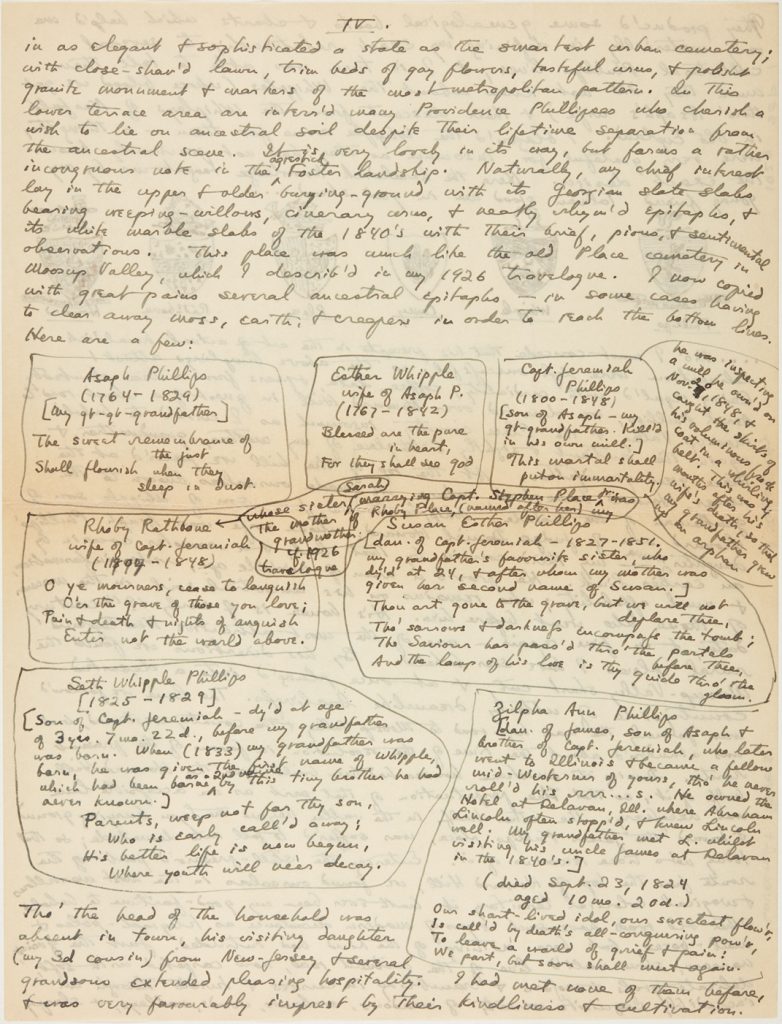 IV.
in as elegant & sophisticated a state as the smartest urban cemetery;
with close-shav'd lawn, trim beds of gay flowers, tasteful urns, & polisht
granite monument & markers of the most metropolitan pattern. In this
lower terrace area are interr'd many Providence Phillipses who cherish'd a
wish to lie on ancestral soil despite their lifetime separation from
the ancestral scene. It is very lovely in its way, but forms a rather
incongruous note in the agrestick Foster landskip. Naturally, my chief interest
lay in the upper & older burying-ground with its Georgian slate slabs
bearing weeping-willows, cinerary urns, & neatly rhym'd epitaphs, &
its white marble slabs of the 1840's with their brief, pious, & sentimental
observations. This place was much like the old Place cemetery in
Moosup Valley, which I describ'd in my 1926 travelogue. I now copied
with great pains several ancestral epitaphs — in some cases having
to clear away moss, earth, & creepers in order to reach the bottom lines.
Here are a few:
Asaph Phillips
(1764-1829)
[my gt-gt-grandfather]
The sweet remembrance of
the just
Shall flourish when they
sleep in dust.
Esther Whipple
wife of Asaph P.
(1767-1842)
Blessed are the pure
in heart,
For they shall see god
Capt. Jeremiah
Phillips
(1800-1848)
[son of Asaph - my
gt-grandfather. Kill'd
in his own mill.]
This mortal shall
put on immortality.
he was inspecting
a mill he own'd on
Nov. 20, 1848, &
caught the skirts of
his voluminous frock
coat in a whirling
belt. This was
months after his
wife's death, so that
my grandfather grew
up an orphan
Rhoby Rathbone
wife of Capt. Jeremiah
(1797-1848)
O ye mourners, cease to languish
O'er the grave of those you love;
Pain & death & nights of anguish
Enter not the world above.
whose sister (Sarah) (marrying Capt. Stephen Place) was
The mother of Rhoby Place, (named after her) my
grandmother
of 1926
travelogue
Susan Esther Phillips
[dau. of Capt. Jeremiah - 1827-1851.
my grandfather's favourite sister, who
dy'd at 24, & after whom my mother was
given her second name of Susan.]
Thou art gone to the grave, but we will not
deplore thee,
Tho' sorrows & darkness incompass the tomb;
The Saviour has pass'd thro' the portals
before thee,
And the lamp of his love is thy guide thro' the
gloom.
Seth Whipple Phillips
[1825-1829]
[Son of Capt. Jeremiah - dy'd at age
of 3 yrs. 7 mo. 22 d., before my grandfather
was born. When (1833) my grandfather was
born, he was given the first name of Whipple,
which had been borne as 2nd name by this tiny brother he had
never known.]
Parents, weep not for thy son,
Who is early call'd away;
His better life is now begun,
Where youth will ne'er decay.
Zilpha Ann Phillips
[dau. of James, son of Asaph &
brother of Capt. Jeremiah, who later
went to Illinois & became a fellow
mid-Westerner of yours, tho' he never
roll'd his rrr...s. He owned the
Hotel at Delavan, Ill. where Abraham
Lincoln often stopp'd, & knew Lincoln
well. My grandfather met L. whilst
visiting his uncle James at Delavan
in the 1840's.]
(died Sept. 23, 1824
aged 10 mo. 20 d.)
Our short-lived idol, our sweetest flow'r,
Is call'd by death's all-conquering pow'r,
To leave a world of grief & pain:
We part, but soon shall meet again.
Tho' the head of the household was
absent in town, his visiting daughter
(my 3d cousin) from New-Jersey & several
grandsons extended pleasing hospitality. I had met none of them before,
& was very favourably imprest by their kindliness & cultivation.